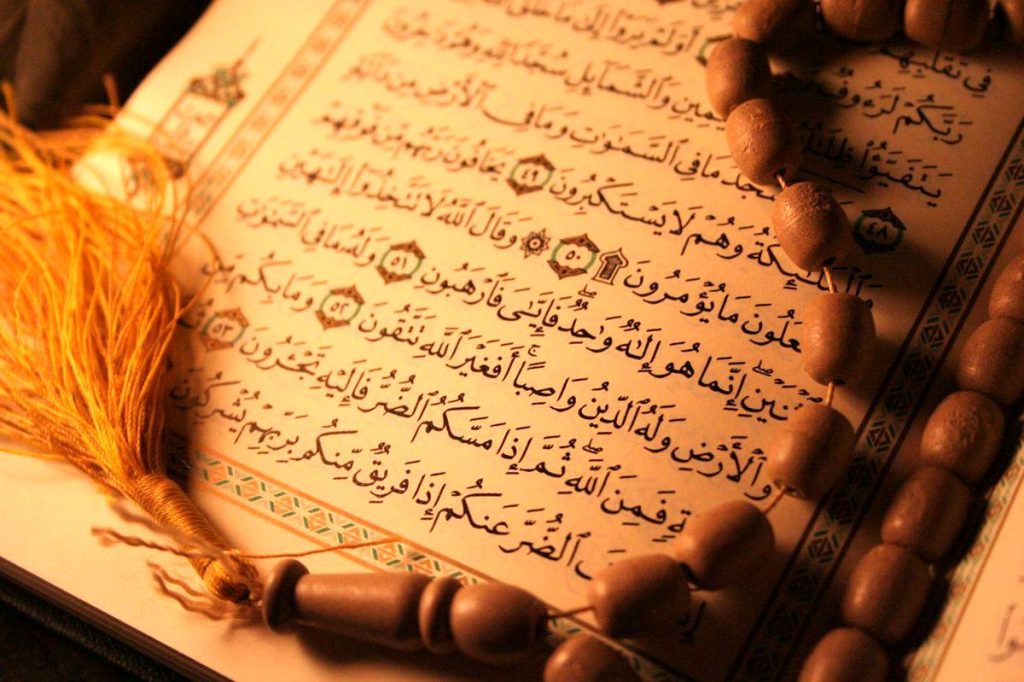 فِي تَقَلُّبِهِمْ
رَبَّكُمْ لَرَءُوفٌ أَوَلَمْ يَرَوْا۟ إِلَىٰ مَا خَلَقَ
يَتَفَيَّؤُا۟ ظِلَٰلُهُۥ ٱلْيَمِينِ وَٱلشَّمَآئِلِ سُجَّدًا لِّلَّهِ وَهُمْ دَٰخِرُونَ
٤٨ يَسْجُدُ مَا فِى ٱلسَّمَٰوَٰتِ وَمَا فِى ٱلْأَرْضِ مِن دَآبَّةٍ
وَٱلْمَلَٰٓئِكَةُ وَهُمْ لَا يَسْتَكْبِرُونَ ٤٩ يَخَافُونَ رَبَّهُم مِّن فَوْقِهِمْ
عَلُونَ مَا يُؤْمَرُونَ ۩ ٥٠ ۞ وَقَالَ ٱللَّهُ لَا تَتَّخِذُوٓا۟ إِلَٰهَيْنِ
ٱثْنَيْنِ ۖ إِنَّمَا هُوَ إِلَٰهٌ وَٰحِدٌ ۖ فَإِيَّٰىَ فَٱرْهَبُونِ ٥١ وَلَهُۥ مَا فِى ٱلسَّمَٰوَٰتِ
وَٱلْأَرْضِ وَلَهُ ٱلدِّينُ وَاصِبًا ۚ أَفَغَيْرَ ٱللَّهِ تَتَّقُونَ ٥٢ وَمَا بِكُم مِّن
ةٍ فَمِنَ ٱللَّهِ ۖ ثُمَّ إِذَا مَسَّكُمُ ٱلضُّرُّ فَإِلَيْهِ تَجْـَٔرُونَ ٥٣
فَ ٱلضُّرَّ عَنكُمْ إِذَا فَرِيقٌ مِّنكُم بِرَبِّهِمْ يُشْرِكُونَ